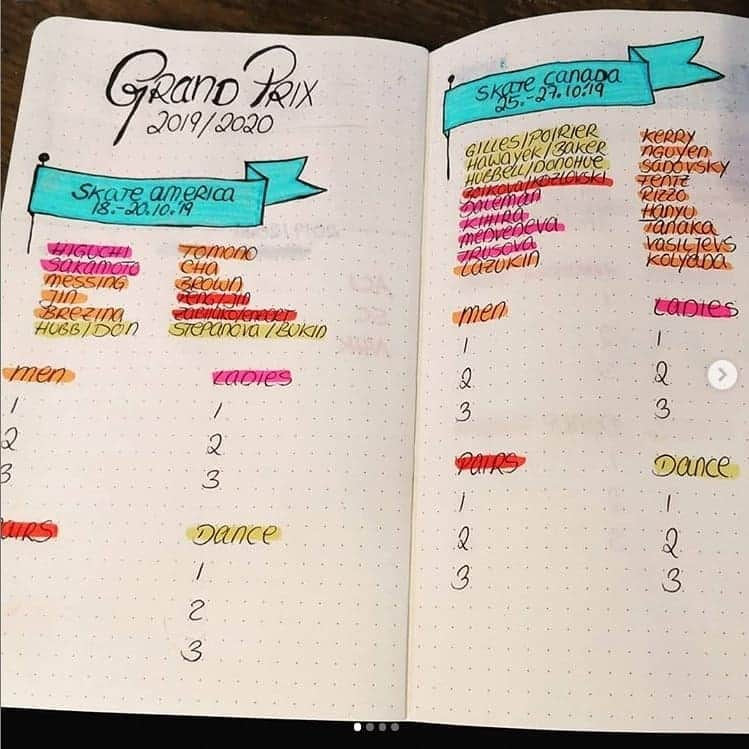 GRAND PRIX
2019/2020
SKATE AMERICA
18.-20.10.19
HIGUCHI
SAKAMOTO
MESSING
JIN
BREZINA
HUBB/DON
TOMONO
CHA
BROWN
PENG/JIN
STEPANOVA/BUKIN
MEN
1
2
3
LADIES
1
2
3
AIRS
DANCE
1
2
3
SKATE CANADA
25.-27.10.19
GILLES/POIRIER
HAWAYEK/BAKER
HUBBELL/DONOHUE
BOIKOVA/KOZLOVSKI
DALEMAN
KIHIRA
MEDVEDEVA
TRUSOVA
LAZUKIN
KERRY
NGUYEN
SADOVSKY
FENTZ
RIZZO
HANYU
TANAKA
VASILJEVS
KOLYADA
MEN
1
2
3
LADIES
1
2
3
PAIRS
1
2
3
DANCE
1
2
3